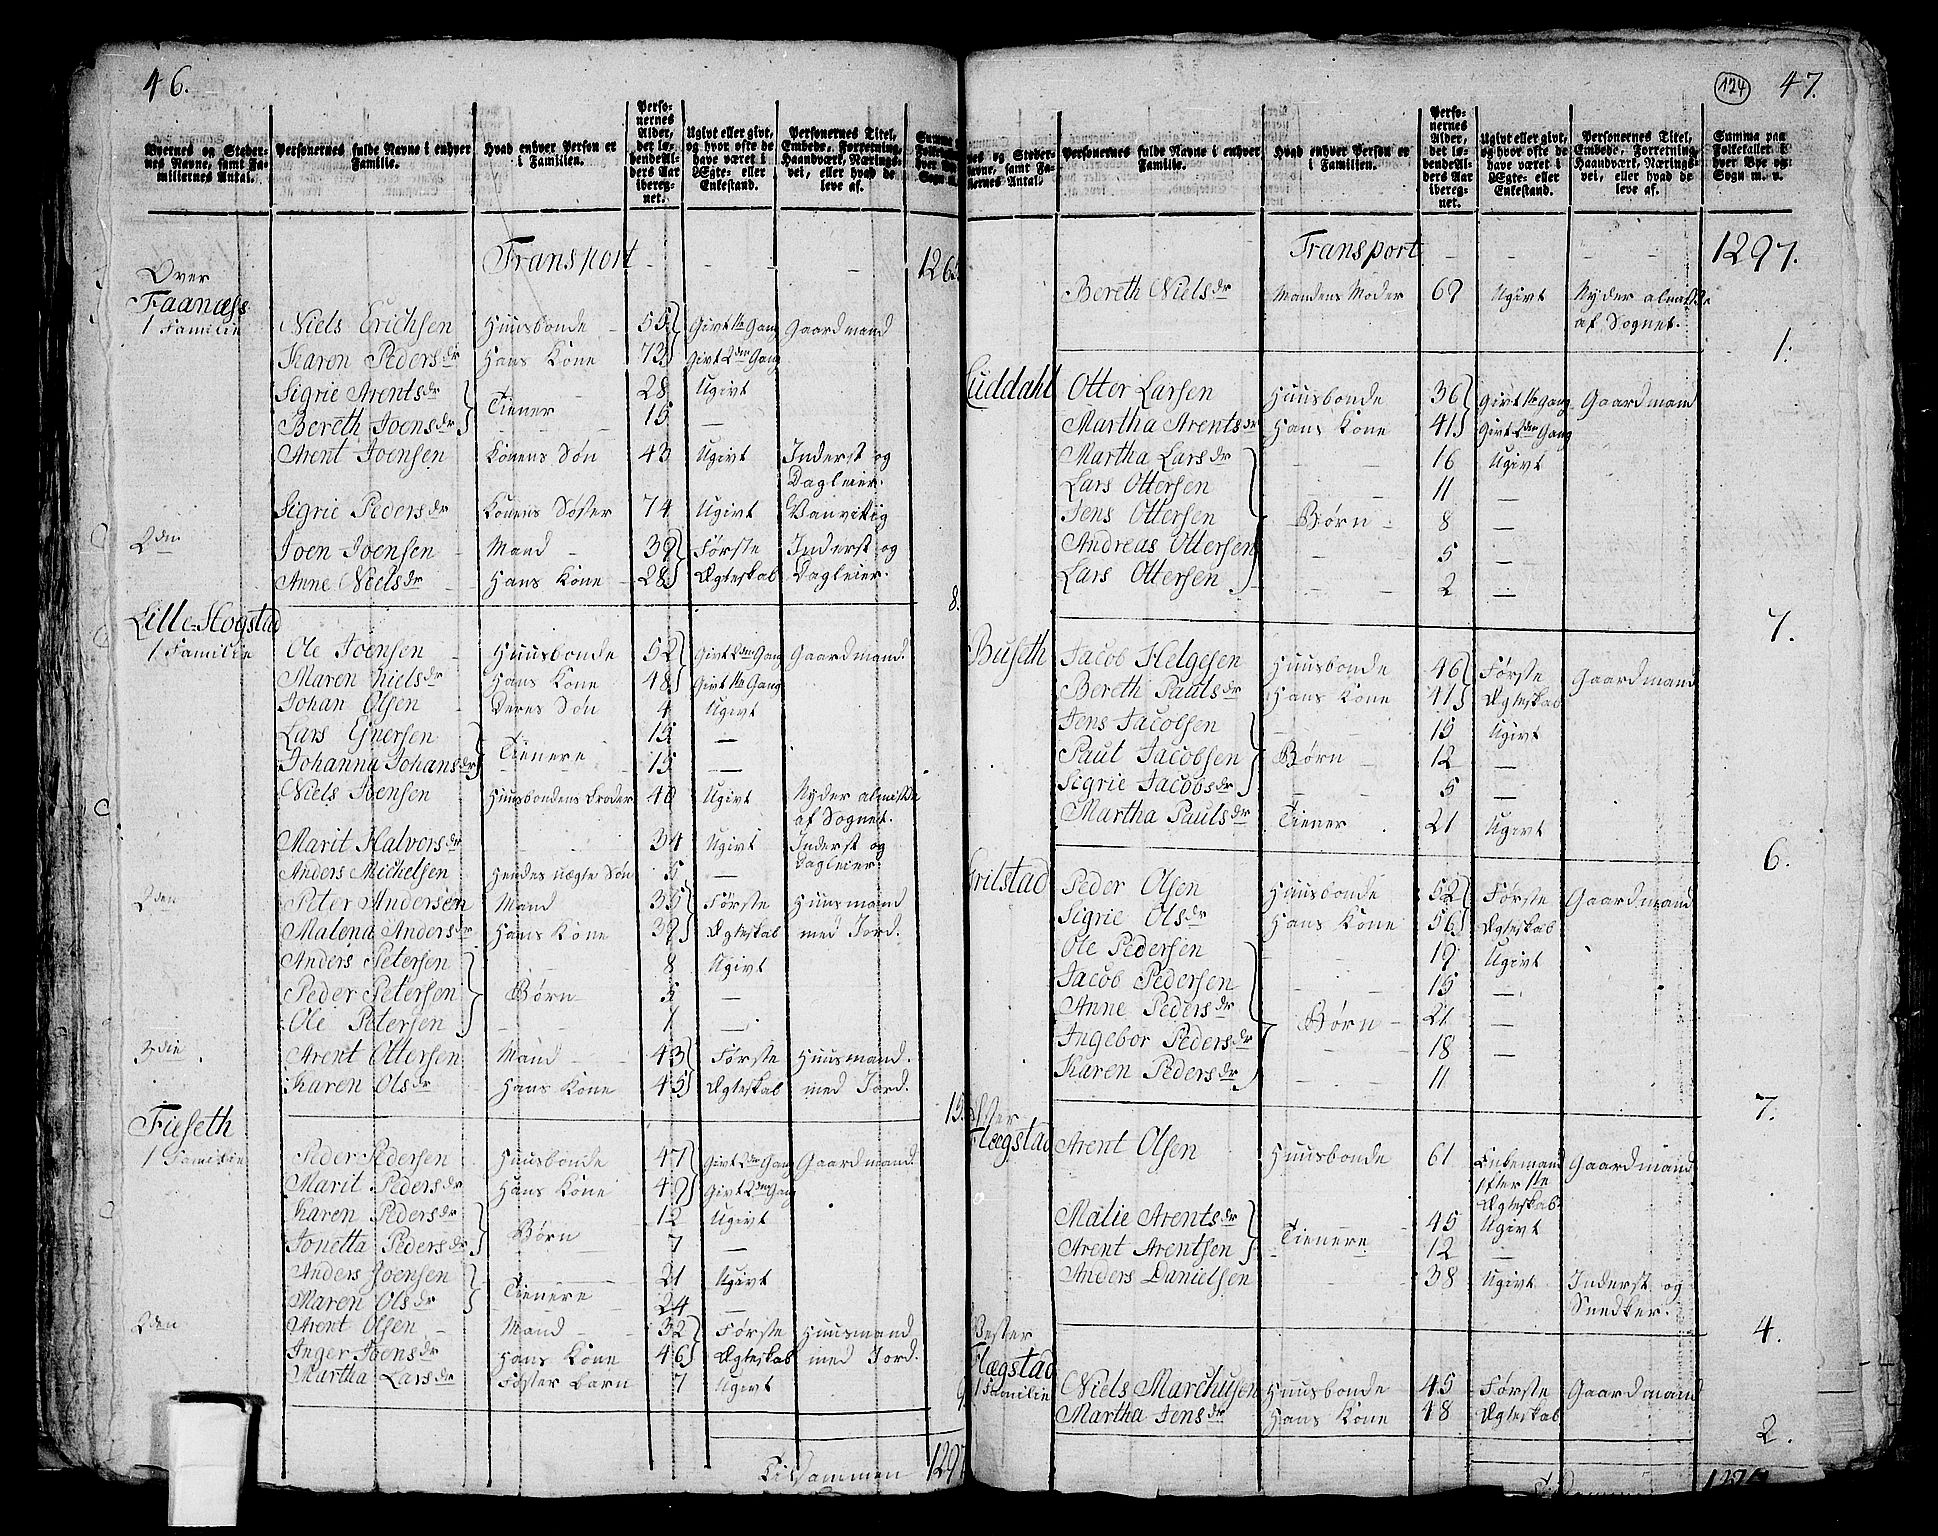 46.
Byernes og Steder-
nes Navne, samt Fa-
miliernes Antal.
Personernes fulde Navne i enhver
Familie.
Hvad enhver Person er
i Familien.
Perso-
nernes
Alder,
det lø-
bende Al-
ders Aar
ibereg-
net.
Ugivt eller givt,
og hvor ofte de
have været i
Ægte- eller
Enkestand.
Personernes Titel,
Embede, Forretning,
Haandværk, Nærings-
vei, eller hvad de
leve af.
Transport - - -
Over
Faanæss
1 Familie Niels Erichsen Huusbonde 55 Givt 1te Gang Gaardmand
Karen Pedersdr Hans Kone 73 Givt 2den Gang
Sigrie Arentsdr Tiener 28 Ugivt
Bereth Joensdr 15 —
Arent Joensen Konens Søn 43 Ugivt Inderst og
Dagleier.
Sigrie Pedersdr Konens Søster 74 Ugivt Vanvitig
2den Joen Joensen Mand 39 Første Inderst og
Anne Nielsdr Hans Kone 28 Ægteskab Dagleier.
8.
Lille Hogstad
1 Familie Ole Joensen Huusbonde 52 Givt 2den Gang Gaardmand.
Maren Nielsdr Hans Kone 48 Givt 1te Gang
Johan Olsen Deres Søn 4 Ugivt
Lars Ejnersen Tienere 15 —
Johanna Johansdr 15 —
Niels Joensen Huusbondens Broder 40 Ugivt Nyder almisse
af Sognet.
Marit Halvorsdr 34 Ugivt Inderst og
Dagleier.
Anders Michelsen Hendes uægte Søn 5 —
2den Peter Andersen Mand 35 Første Huusmand
Malena Andersdr Hans Kone 39 Ægteskab med Jord.
Anders Petersen 8 Ugivt
Peder Petersen Børn 5 —
Ole Petersen 1 —
3die Arent Ottersen Mand 43 Første Huusmand.
Karen Olsdr Hans Kone 45 Ægteskab med Jord.
15.
Fieseth
1 Familie Peder Pedersen Huusbonde 47 Givt 2den Gang Gaardmand.
Marit Pedersdr Hans Kone 49 Givt 2den Gang
Karen Pedersdr Børn 12 Ugivt
Jonetta Pedersdr 7 —
Anders Joensen Tienere 21 Ugivt
Maren Olsdr 24 —
2den Arent Olsen Mand 32 Første Huusmand
Inger Joensdr Hans Kone 46 Ægteskab med Jord.
Martha Larsdr Foster Barn 7 Ugivt
9
Tilsammen 1297
124 47.
Personernes fulde Navne i enhver
Familie.
Hvad enhver Person er
i Familien.
Perso-
nernes
Alder,
det lø-
bende Al-
ders Aar
ibereg-
net.
Ugivt eller givt,
og hvor ofte de
have været i
Ægte- eller
Enkestand.
Personernes Titel,
Embede, Forretning,
Haandværk, Nærings-
vei, eller hvad de
leve af.
Summa paa
Folketallet i
hver Bye og
Sogn m. v.
Transport - - - 1297.
Bereth Nielsdr Mandens Moder 69 Ugivt Nyder almisse
af Sognet.
1.
Otter Larsen Huusbonde 36 Givt 1te Gang Gaardmand
Martha Arentsdr Hans Kone 41 Givt 2den Gang
Martha Larsdr 16 Ugivt
Lars Ottersen 11 —
Jens Ottersen Børn 8 —
Andreas Ottersen 5 —
Lars Ottersen 2 —
7.
Buseth Jacob Helgesen Huusbonde 46 Første Gaardmand
Bereth Paulsdr Hans Kone 41 Ægteskab
Jens Jacobsen 15 Ugivt
Paul Jacobsen Børn 12 —
Sigrie Jacobsdr 5 —
Martha Paulsdr Tiener 21 Ugivt
6.
Peder Olsen Huusbonde 52 Første Gaardmand
Sigrie Olsdr Hans Kone 56 Ægteskab
Ole Pedersen 19 Ugivt
Jacob Pedersen 15 —
Anne Pedersdr Børn 21 —
Ingebor Pedersdr 18 —
Karen Pedersdr 11
7.
Øster
Flægstad Arent Olsen Huusbonde 61 Enkemand Gaardmand
efter 1te
Ægteskab
Malie Arentsdr Tienere 45 Ugivt
Arent Arentsen 12 —
Anders Danielsen 38 Ugivt Inderst og
Snedker.
4.
Vester
Flægstad
1 Familie Niels Marchusen Huusbonde 45 Første Gaardmand
Martha Jensdr Hans Kone 48 Ægteskab
2.